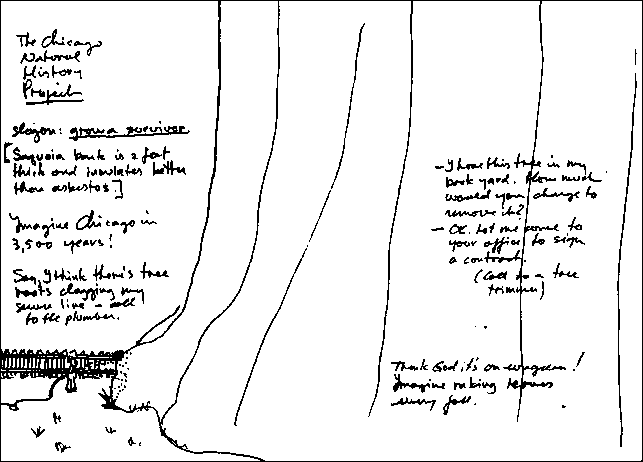 The Chicago
Natural
History
Project
slogan: grow a survivor
[Sequoia bark is 2 feet
thick and insulates better
than asbestos]
Imagine Chicago in
3,500 years!
Say, I think there's tree
roots clogging my
sewer line - call
to the plumber.
- I have this tree in my
back yard. How much
would you charge to
remove it?
- OK. Let me come to
your office to sign
a contract.
(Call to a tree
trimmer)
Thank God it's an evergreen!
Imagine raking leaves
every fall.